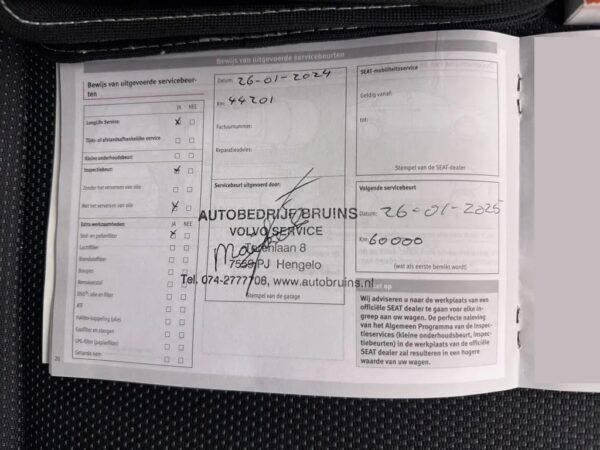 Bewijs van uitgevoerde servicebeurten
Bewijs van uitgevoerde servicebeur-
ten
JA NEE
LongLife Service:
Tijds- of afstandsafhankelijke service
Kleine onderhoudsbeurt
Inspectiebeurt:
Zonder het verversen van olie
Met het verversen van olie
Extra werkzaamheden
JA NEE
Stof- en pollenfilter
Luchtfilter
Brandstoffilter
Bougies
Remvloeistof
DSG: olie en filter
ATF
Haldex-koppeling (olie)
Gasfilter en slangen
LPG-filter (papierfilter)
Getande riem
20
Datum: 26-01-2024
Km: 44201
Factuurnummer:
Reparatieadvies:
Servicebeurt uitgevoerd door:
AUTOBEDRIJF BRUINS
VOLVO SERVICE
laan 8
7559 PJ Hengelo
Tel. 074-2777708, www.autobruins.nl
Stempel van de garage
SEAT-mobiliteitsservice
Geldig vanaf:
tot:
Stempel van de SEAT-dealer
Volgende servicebeurt
Datum: 26-01-2025
Km: 60000
(wat als eerste bereikt wordt)
Let op
Wij adviseren u naar de werkplaats van een
officiële SEAT dealer te gaan voor elke in-
greep aan uw wagen. De perfecte naleving
van het Algemeen Programma van de Inspec-
tieservices (kleine onderhoudsbeurt, Inspec-
tiebeurten) in de werkplaats van de officiële
SEAT dealer zal resulteren in een hogere
waarde van uw wagen.